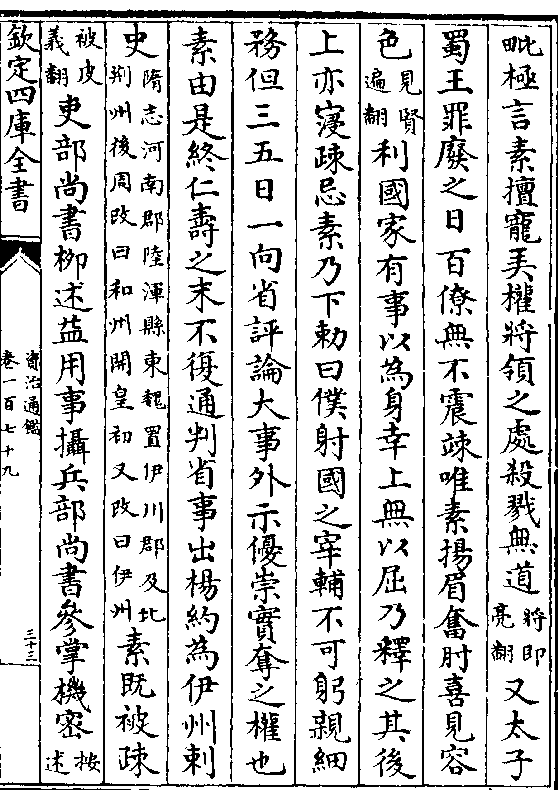 毗極言素擅寵弄權將領之處殺戮無道將即亮翻又太子
蜀王罪廢之日百僚無不震竦唯素揚眉奮肘喜見容
色見賢遍翻利國家有事以為身幸上無以屈乃釋之其後
上亦寖疎忌素乃下敕曰僕射國之宰輔不可躬親細
務但三五日一向省評論大事外示優崇實奪之權也
素由是終仁壽之末不復通判省事出楊約為伊州刺
史隋志河南郡陸渾縣東魏置伊川郡及北荆州後周改曰和州開皇初又改曰伊州素既被疎
被皮義翻吏部尚書栁述益用事攝兵部尚書參掌機宻按述
欽定四庫全書
資治通鑑
卷一百七十九
三十三